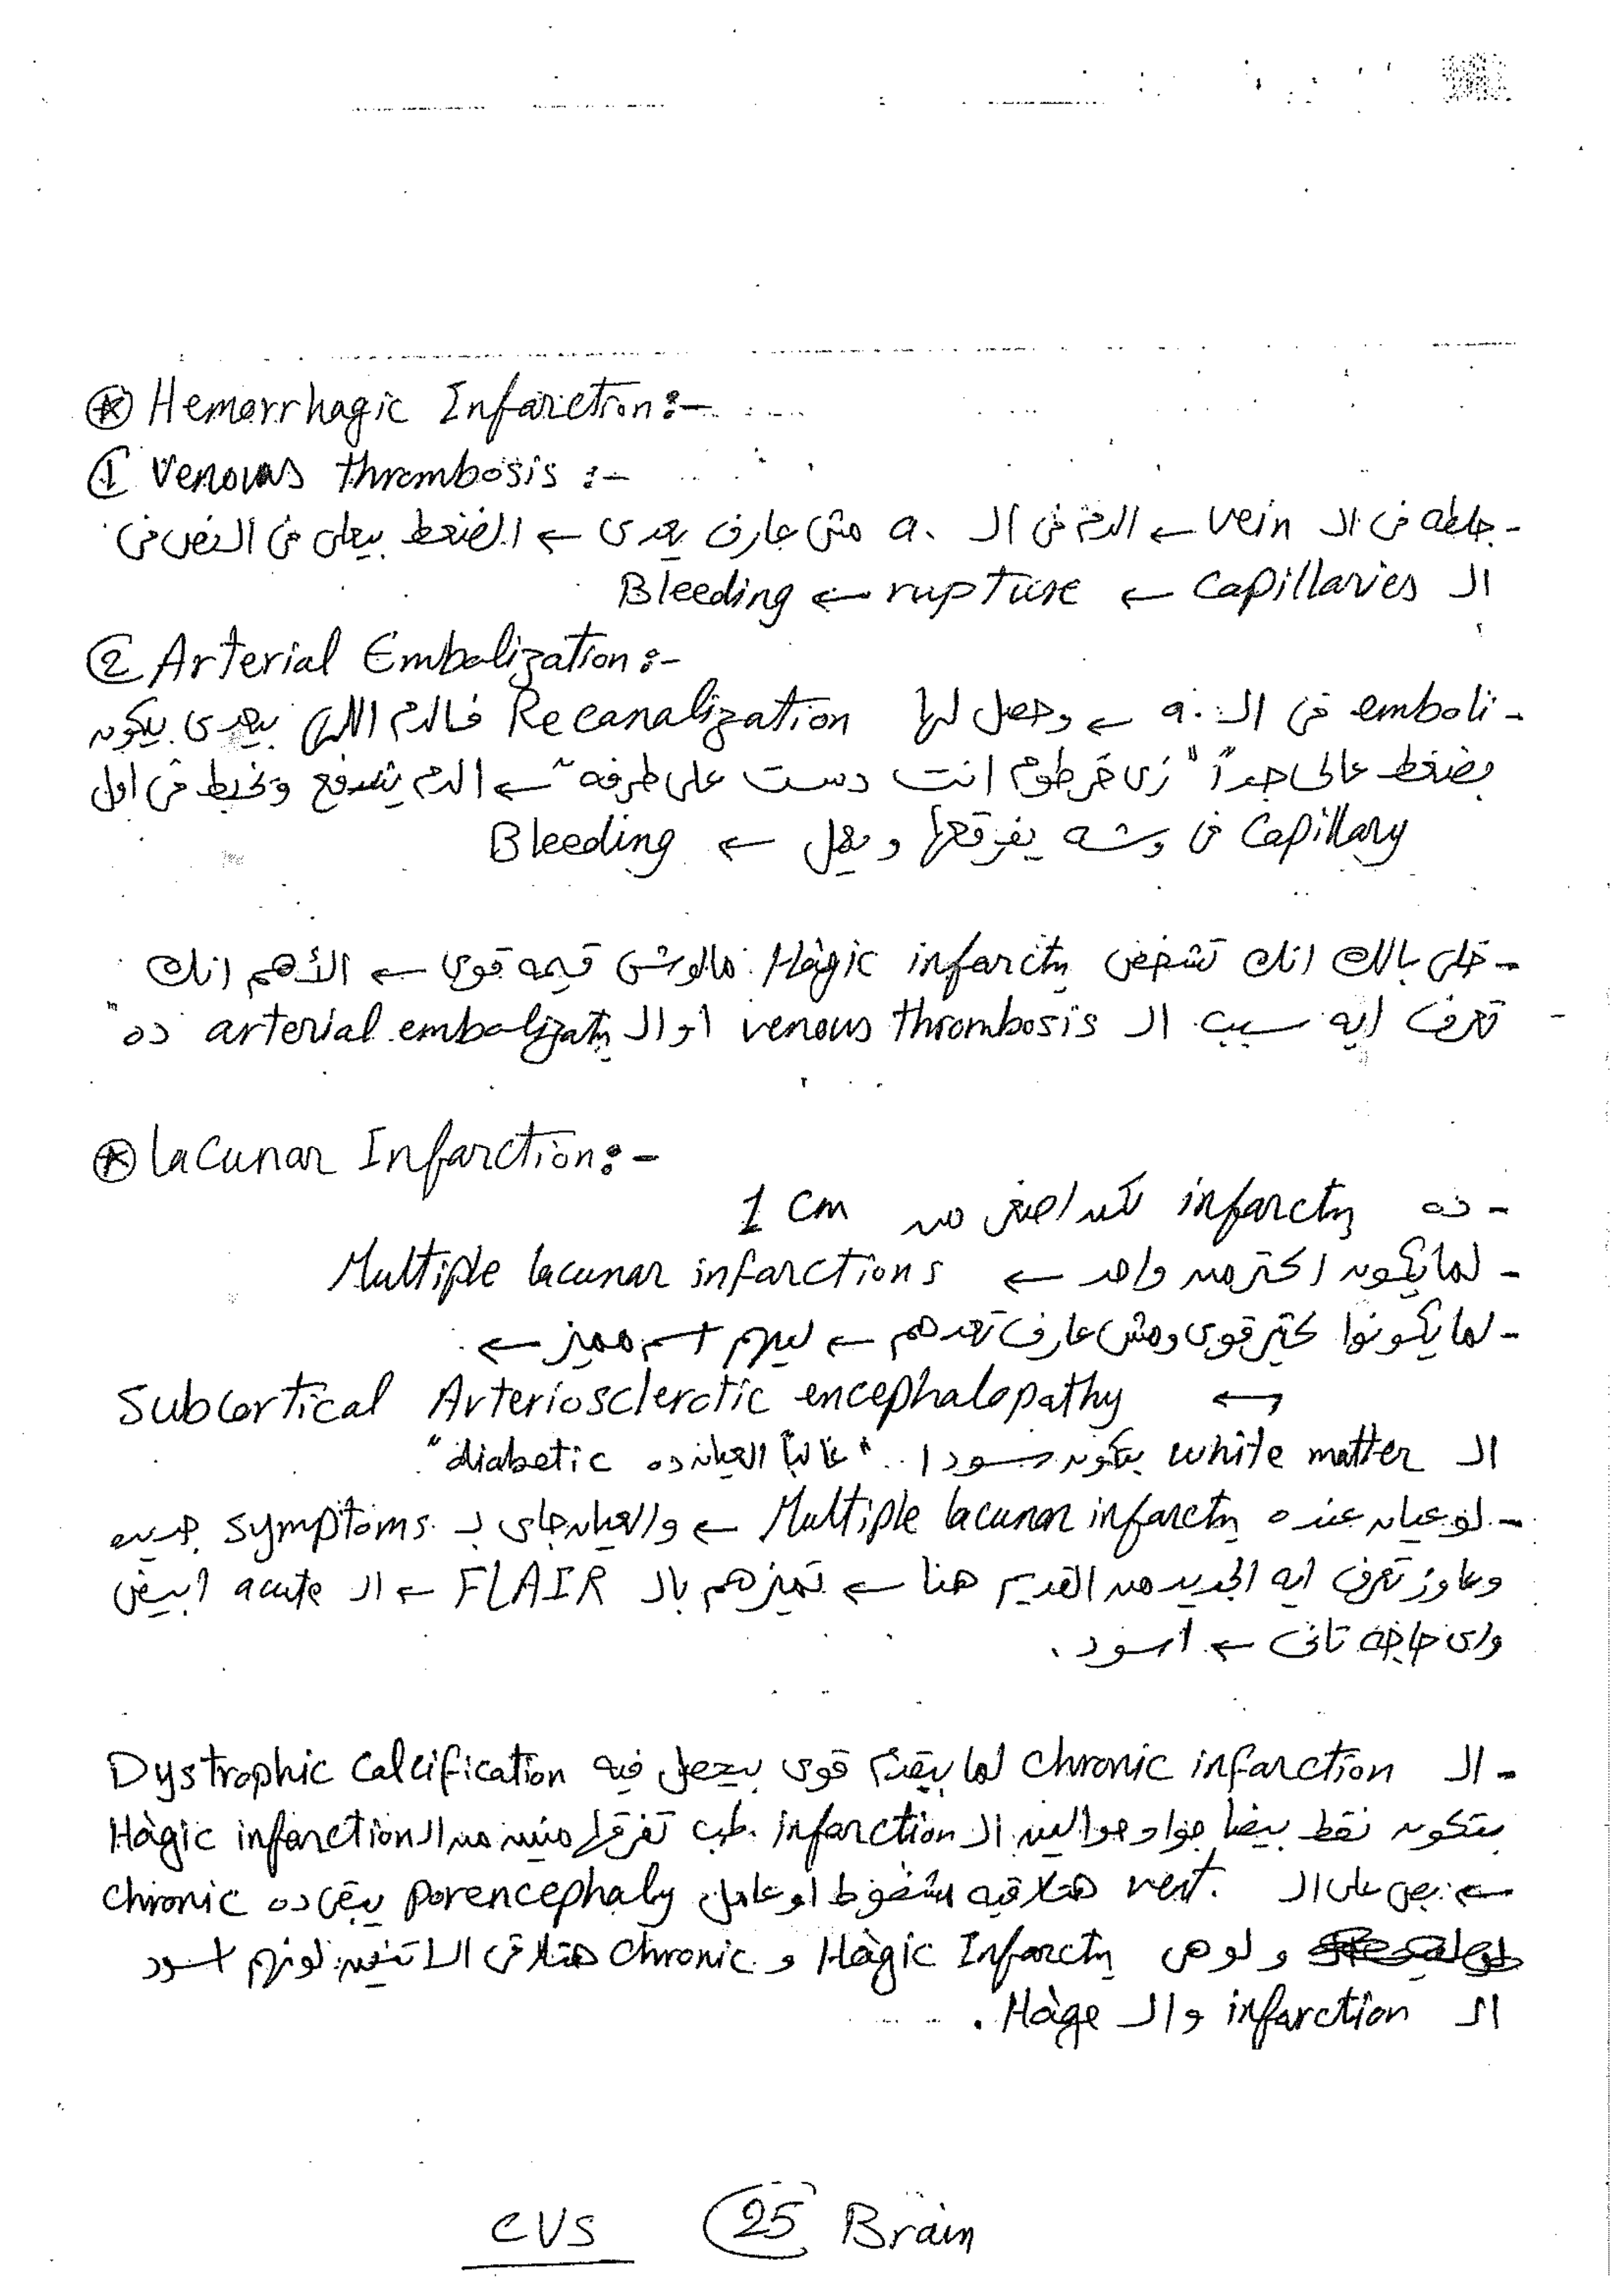 ⊛ Hemorrhagic Infarction:-
① Venous thrombosis :-
- جلطه فى الـ vein ← الدم فى الـ a. مش عارف يعدى ← الضغط بيعلى فى النص فى
الـ Capillaries ← rupture ← Bleeding
② Arterial Embolization:-
- emboli فى الـ a. ← وحصل لها Recanalization فالدم اللى بيعدى بيكون
بضغط عالى جداً "زى خرطوم انت دست على طرفه" ← الدم يندفع ويخبط فى اول
Capillary فى وشه يفرقعها ويعمل ← Bleeding
- خلى بالك انك تشخص Hàgic infarctn مالوش قيمه قوى ← الأهم انك
تعرف ايه سبب الـ venous thrombosis او الـ arterial embolizatn ده"
⊛ Lacunar Infarction:-
- ده infarctn لكنه اصغر من 1 Cm
- لما يكون اكتر من واحد ← Multiple lacunar infarctions
- لما يكونوا كتير قوى ومش عارف تعدهم ← ليهم اسم مميز ←
← Subcortical Arteriosclerotic encephalopathy
الـ white matter بتكون سودا .. "غالباً العيان ده diabetic"
- لو عيان عنده Multiple lacunar infarctn ← والعيان جاى بـ symptoms جديده
وعاوز تعرف ايه الجديد من القديم هنا ← تميزهم بالـ FLAIR ← الـ acute ابيض
واى حاجه تانى ← اسود .
- الـ chronic infarction لما يقدم قوى بيحصل فيه Dystrophic Calcification
بتكون نقط بيضا جوا وحوالين الـ infarction. طب تفرقها منين من الـ Hàgic infarction
← بص على الـ vent. هتلاقيه مشفوط او عامل porencephaly يبقى ده chronic
ولو هى Hàgic Infarctn و chronic هتلاقى الاتنين لونهم اسود
الـ infarction والـ Hàge .
CVS (25) Brain